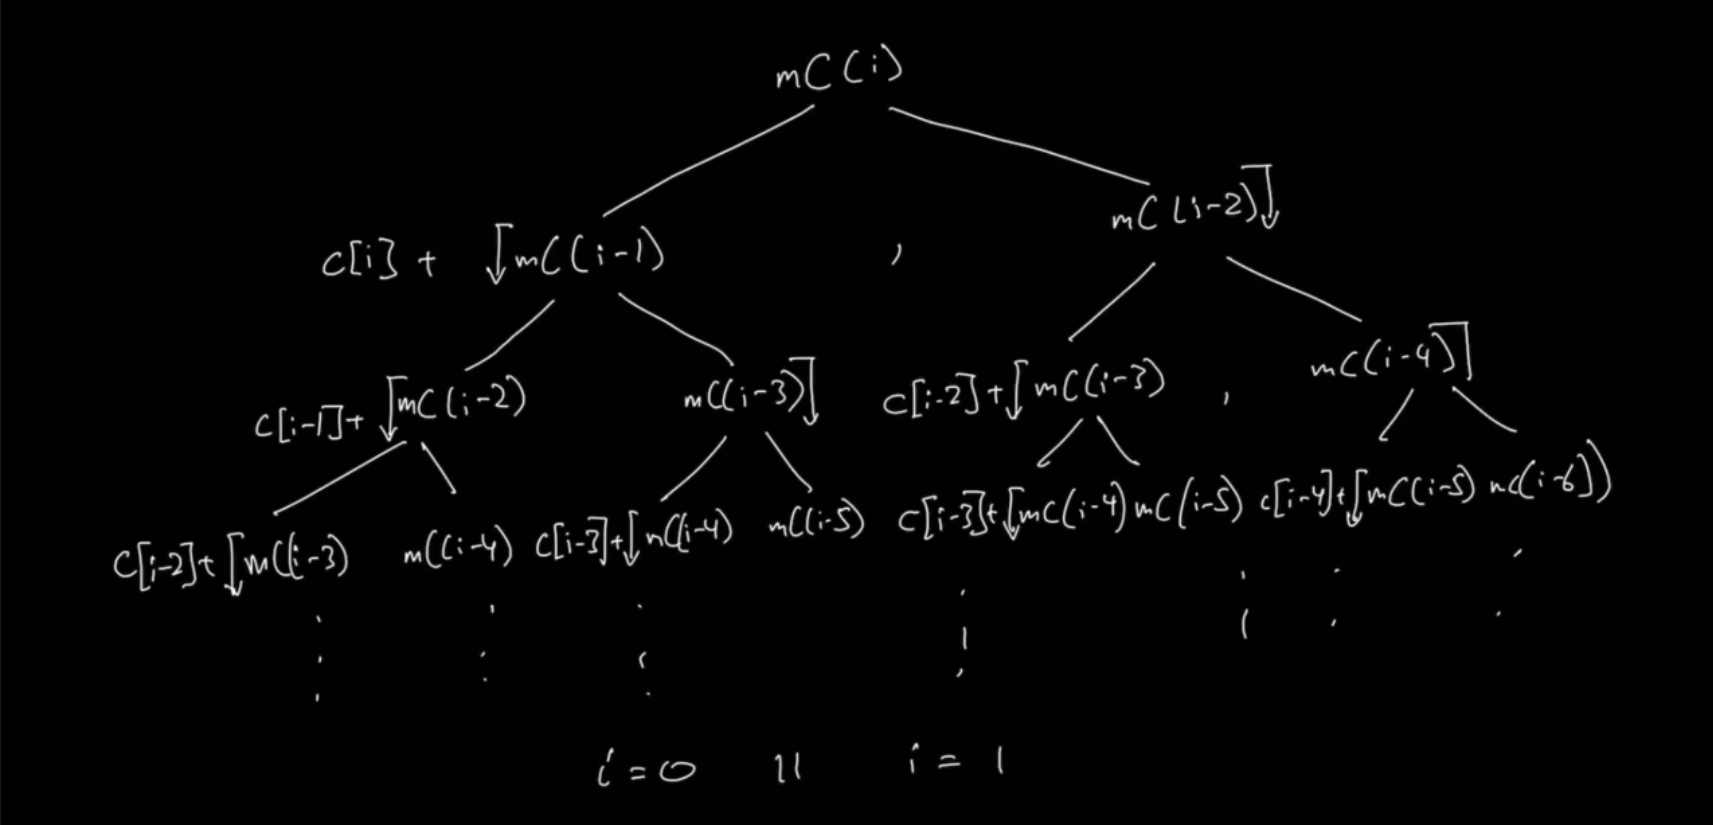 mC(i)
mC(i-2)
c[i] + mC(i-1) ,
mC(i-4)
c[i-1]+ mC(i-2) mC(i-3) c[i-2]+ mC(i-3) ,
c[i-2]+ mC(i-3) mC(i-4) c[i-3]+ mC(i-4) mC(i-5) c[i-3]+ mC(i-4) mC(i-5) c[i-4]+ mC(i-5) mC(i-6))
i=0 || i = 1